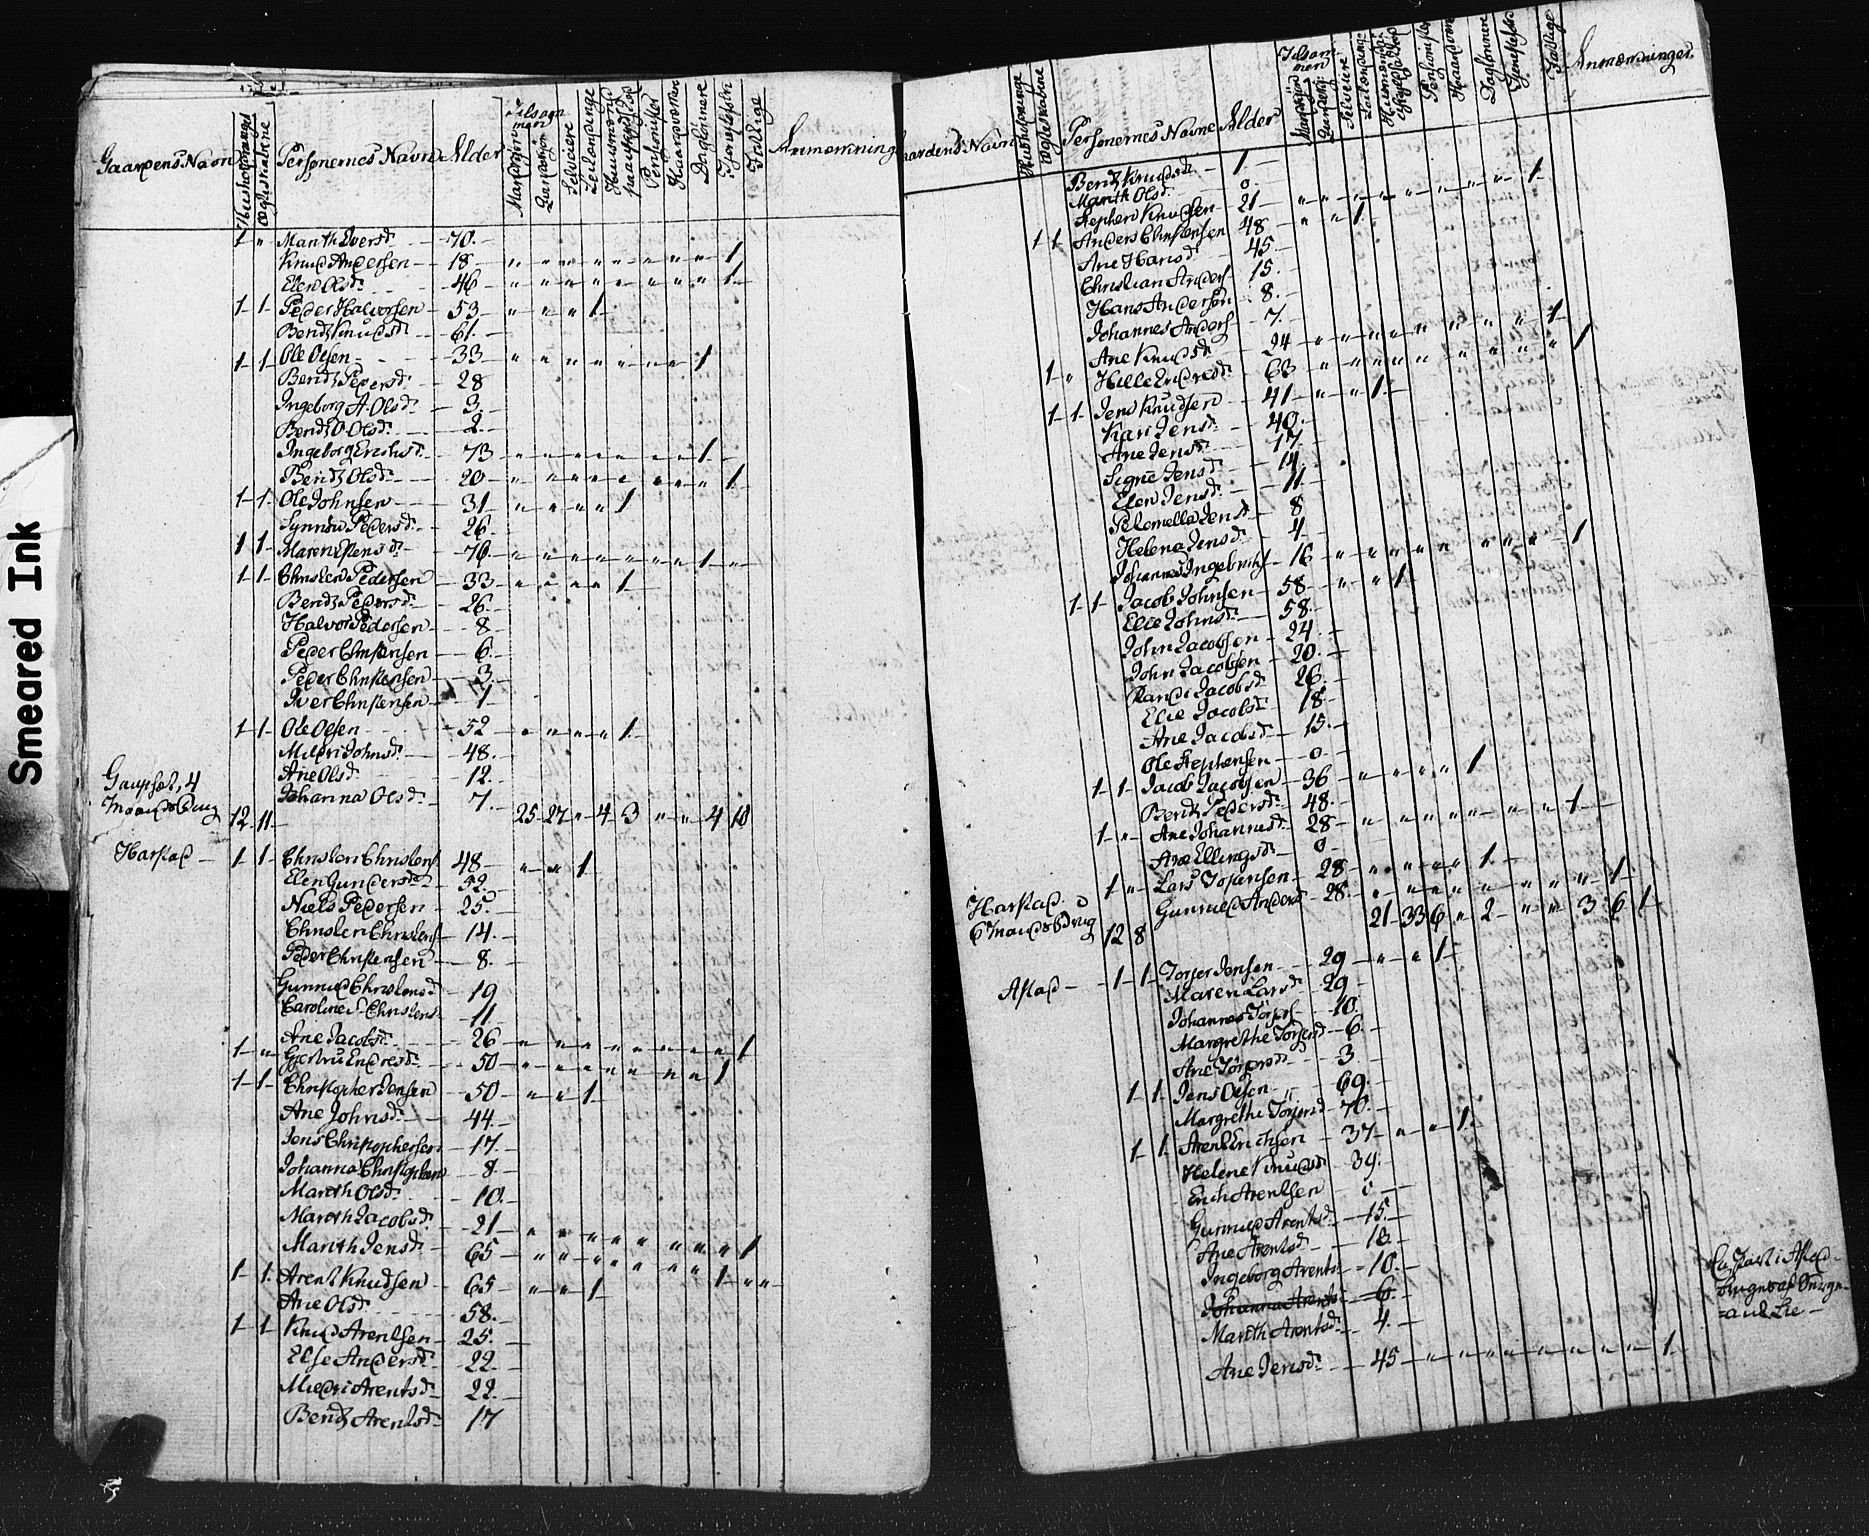 Smeared Ink
Gaardens Navn Personernes Navn Alder Mandkjøn Qvindkjøn Selveiere Leilændinge Pensionister Haandværker Daglønnere Tjenestefolk Fattige Anmærkning
1 " Marith Iversd. 70.
Knud Andersen 18 " " " " " " " " 1
Elen Olsd. 46 " " " " " " " " 1
1 1 Peder Halvorsen 53 " " " 1
Bendt Knudsd. 61.
1 1 Ole Olsen 33 " " " " " " " 1
Bendt Pedersd. 28
Ingeborg A. Olsd. 3
Bendt O. Olsd. 2.
Ingeborg Erichsd. 73 " " " " " " " 1
Bendt Olsd. 20 " " " " " " " " 1
1 1 Ole Johnsen 31 " " " " 1
Synnøv Pedersd. 26
1 1 Maren Estensd. 76 " " " " " " " 1
1 1 Christen Pedersen 33 " " " " 1
Bendt Pedersd. 26.
Halvor Pedersen 8
Peder Christensen 6.
Peder Christensen 3.
Iver Christensen 1
1 1 Ole Olsen 52 " " " " 1
Mildri Johnsd. 48.
Ane Olsd. 12.
Johanna Olsd. 7.
Gaupset, 4
Mands Brug 12 11 25 27 " 4 3 " " 4 10
Harstad 1 1 Christen Christens. 48 " " 1
Elen Gundersd. 52.
Niels Pedersen 25.
Christen Christens. 14
Peder Christensen 8.
Gunnild Christensd. 19
Caroline S. Christens. 11
Ane Jacobsd. 26 " " " " " " " " 1
1 " Gjertru Endresd. 50 " " " " " " " 1
1 1 Christopher Jensen 50 " " 1
Ane Johnsd. 44.
Jens Christophersen 17.
Johanna Christophers. 8
Marith Olsd. 10.
Marith Jacobsd. 21 " " " " " " " " 1
Marith Jensd. 65 " " " " " " " 1 " "
1 1 Arent Knudsen 65 " " 1
Ane Olsd. 58.
1 1 Knud Arentsen 25.
Else Andersd. 22
Mildri Arentsd. 22.
Bendt Arentsd. 17
Gaardens Navn Personernes Navne Alder Mandkjøn Qvindkjøn Selveiere Leilændinge Pensionister Haandværker Daglønnere Tjenestefolk Fattige Anmærkninger
Bendt Knudsd. 1
Marith Olsd. 0.
Stephen Knudsen 21 " " " " " " " " 1
1 1 Anders Christensen 48 " " 1
Ane Hansd. 45.
Christian Anders. 15.
Hans Andersen 8.
Johannes Anders. 7.
Ane Knudsd. 24 " " " " " " " " 1
1 " Hille Endresd. 63 " " " " " " " " " 1
1 1 Jens Knudsen 41 " " 1
Kari Jensd. 40.
Ane Jensd. 17.
Signe Jensd. 14
Elen Jensd. 11
Peternella Jensd. 8
Helena Jensd. 4
Johannes Ingebrigts. 16 " " " " " " " " 1
1 1 Jacob Johnsen 58 " " 1
Elie Johnsd. 58.
John Jacobsen 24
John Jacobsen 20.
Randi Jacobsd. 26.
Elie Jacobsd. 18
Ane Jacobsd. 15.
Ole Stephensen 0
1 1 Jacob Jacobsen 36 " " " " 1
Bendt Pedersd. 48.
1 " Ane Johannesd. 28 " " " " " " " 1
Ane Ellingsd. 0
1 " Lars Torjersen 28 " " " " 1
Gunnild Andersd. 28. " " " " " " " " 1
Harstad
6 Mands Brug 12 8 21 33 6 " 2 " " 3 6 1
Astad 1 1 Torjer Jensen 29 " " 1
Maren Larsd. 29
Johannes Torjers. 10.
Margrethe Torjersd. 6.
Ane Torjersd. 3.
1 1 Jens Olsen 69.
Margrethe Torjersd. 70.
1 1 Arent Erichsen 37 " " 1
Helene Knudsd. 39.
Erich Arentsen 0
Gunnild Arentsd. 15.
Ane Arentsd. 12.
Ingeborg Arents. 10.
Johanna Arents. 6.
Marith Arentsd. 4.
Ane Jensd. 45 " " " " " " " " 1